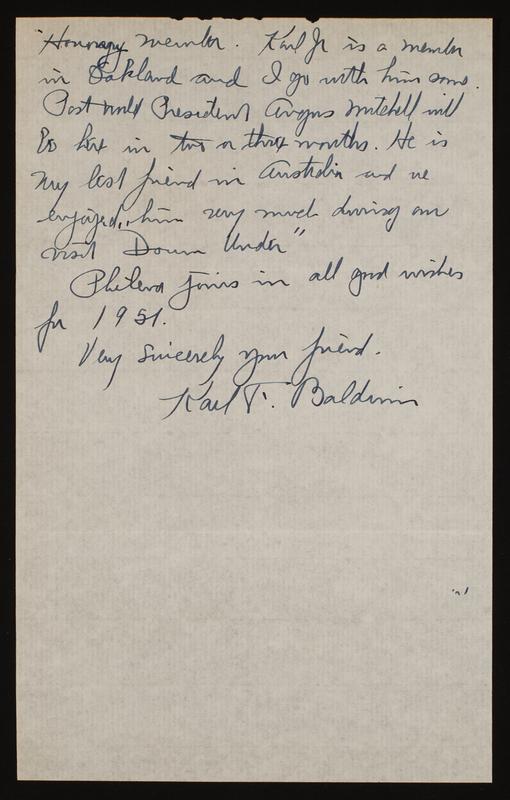 "Honorary member. Karl Jr is a member
in Oakland and I go with him some.
Past World President Angus Mitchell will
be here in two or three months. He is
my best friend in Australia and we
enjoyed him very much during our
visit "Down Under"
Philena joins in all good wishes
for 1951.
Very sincerely your friend.
Karl F. Baldwin